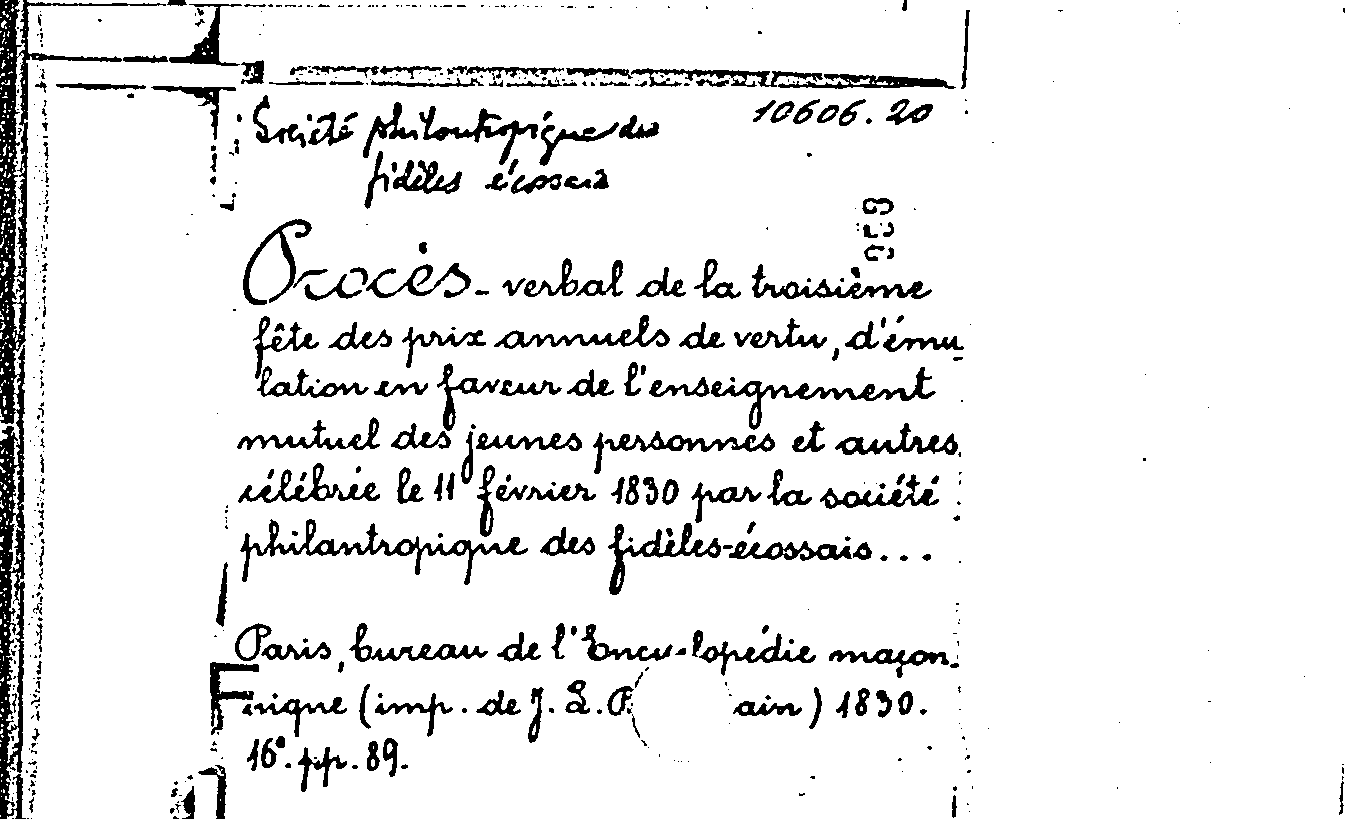 10606.20
Société philantropique des
fidèles écossais
959
Procès-verbal de la troisième
fête des prix annuels de vertu, d'ému-
lation en faveur de l'enseignement
mutuel des jeunes personnes et autres
célébrée le 11 février 1830 par la société
philantropique des fidèles-écossais...
Paris, bureau de l'Encyclopédie maçon-
nique (imp. de J. L. ) 1830.
16°. pp. 89.